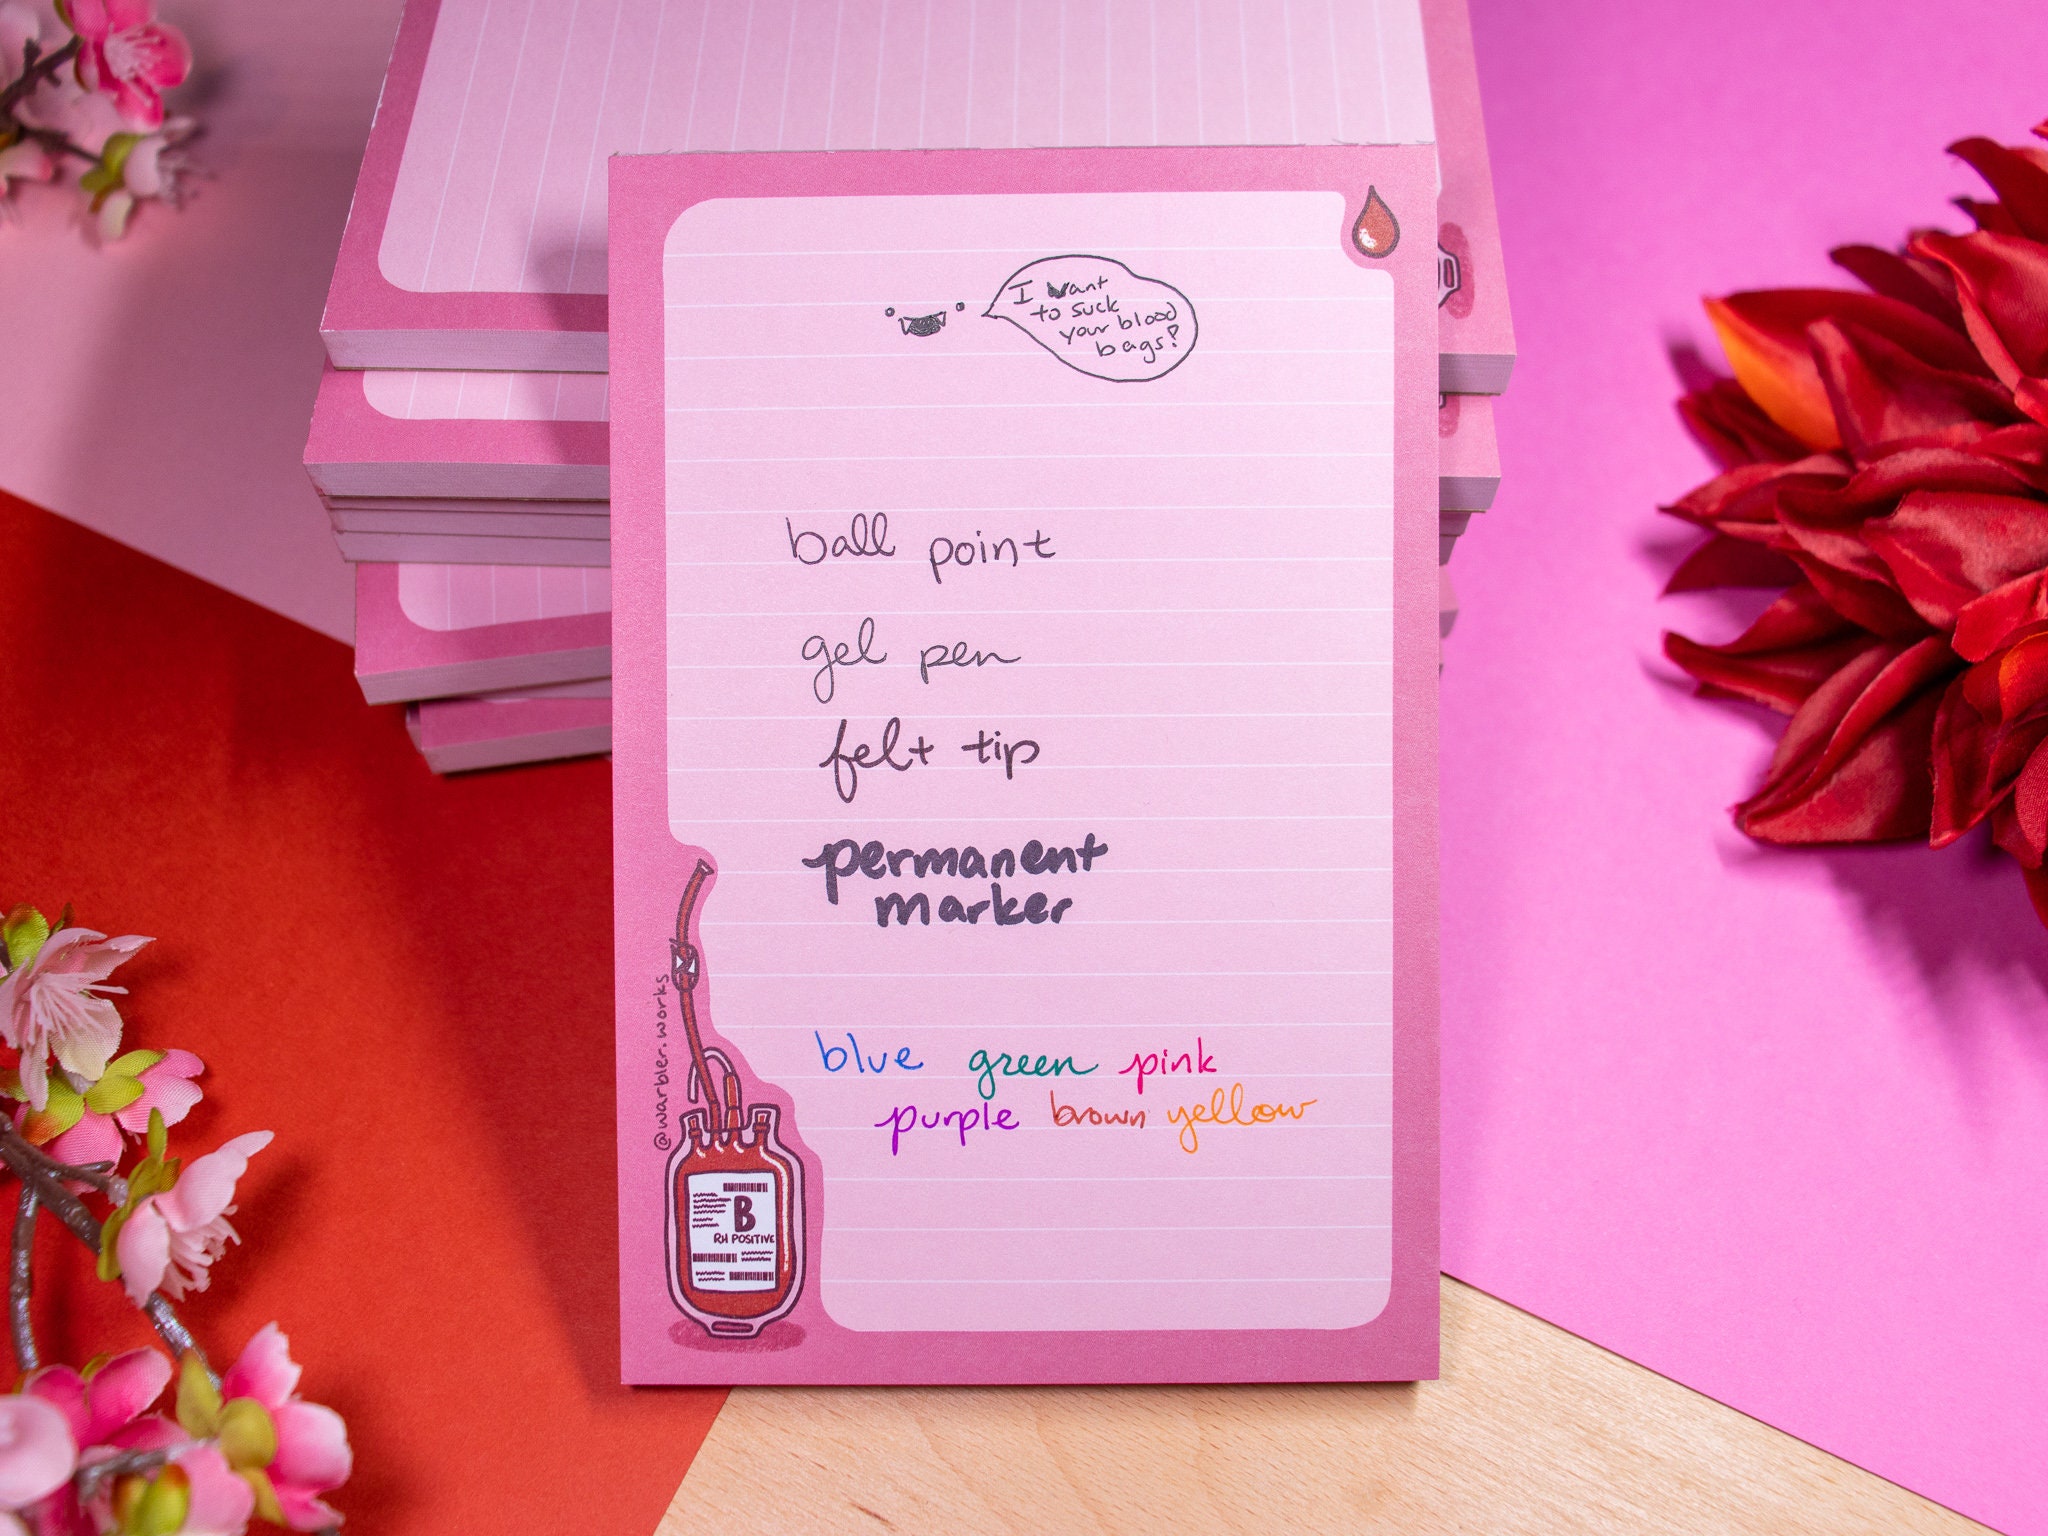 I want
to suck
your blood
bags!
ball point
gel pen
felt tip
permanent
marker
blue green pink
purple brown yellow
@warbler.works
B
RH POSITIVE